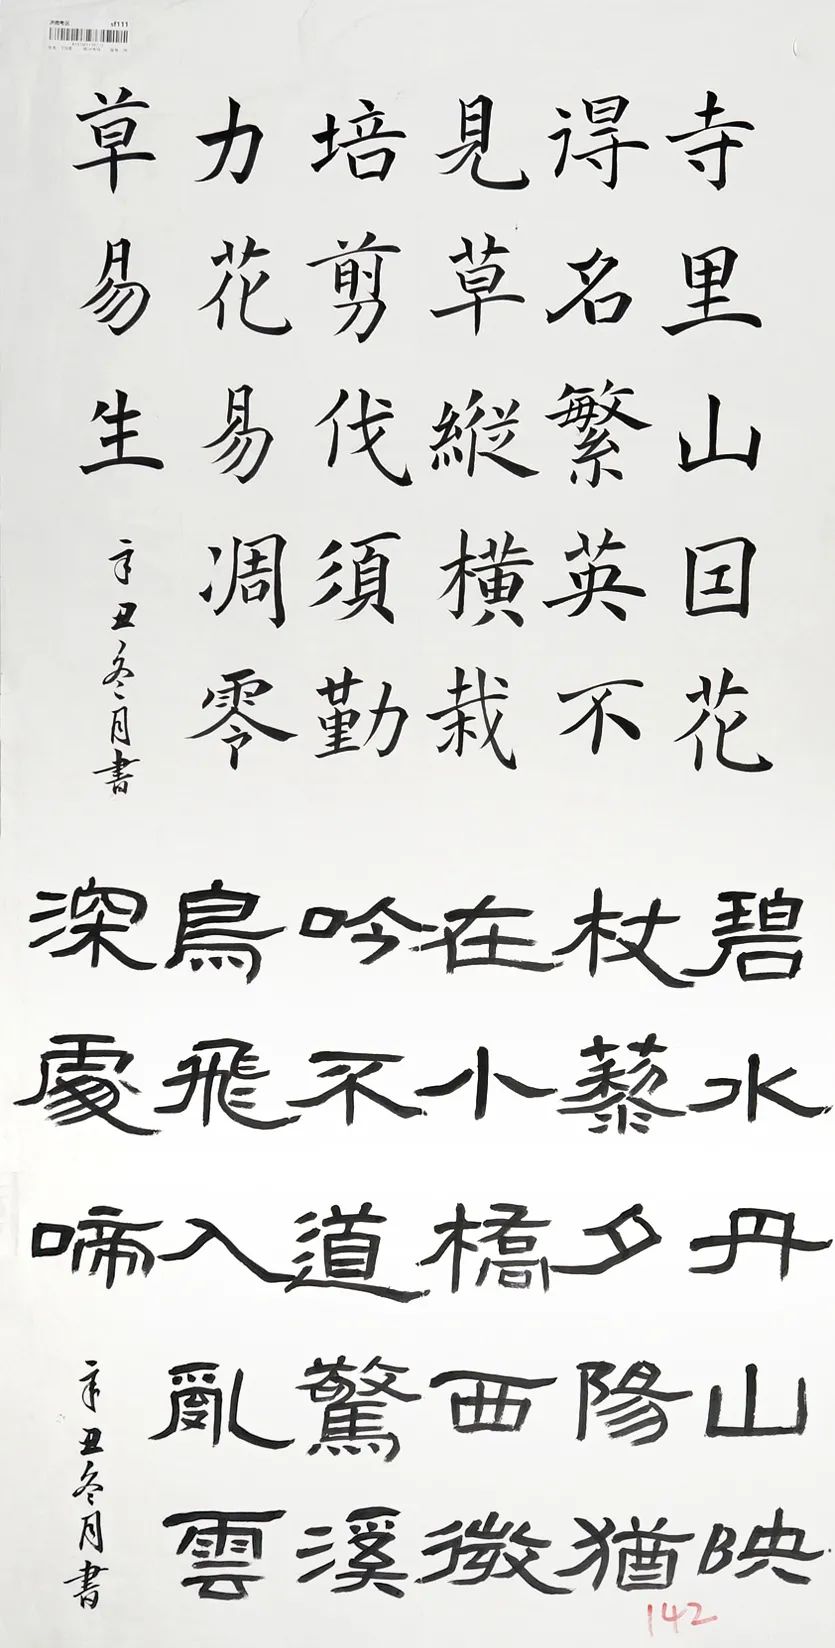 sf111
寺里山因花
得名繁英不
見草縱橫栽
培剪伐須勤
力花易凋零
草易生
辛丑冬月書
碧水丹山映
杖藜夕陽猶
在小橋西微
吟不道驚溪
鳥飛入亂雲
深處啼
辛丑冬月書
142